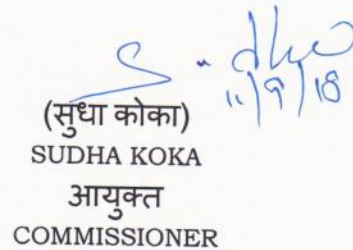 11/9/18
(सुधा कोका)
SUDHA KOKA
आयुक्त
COMMISSIONER